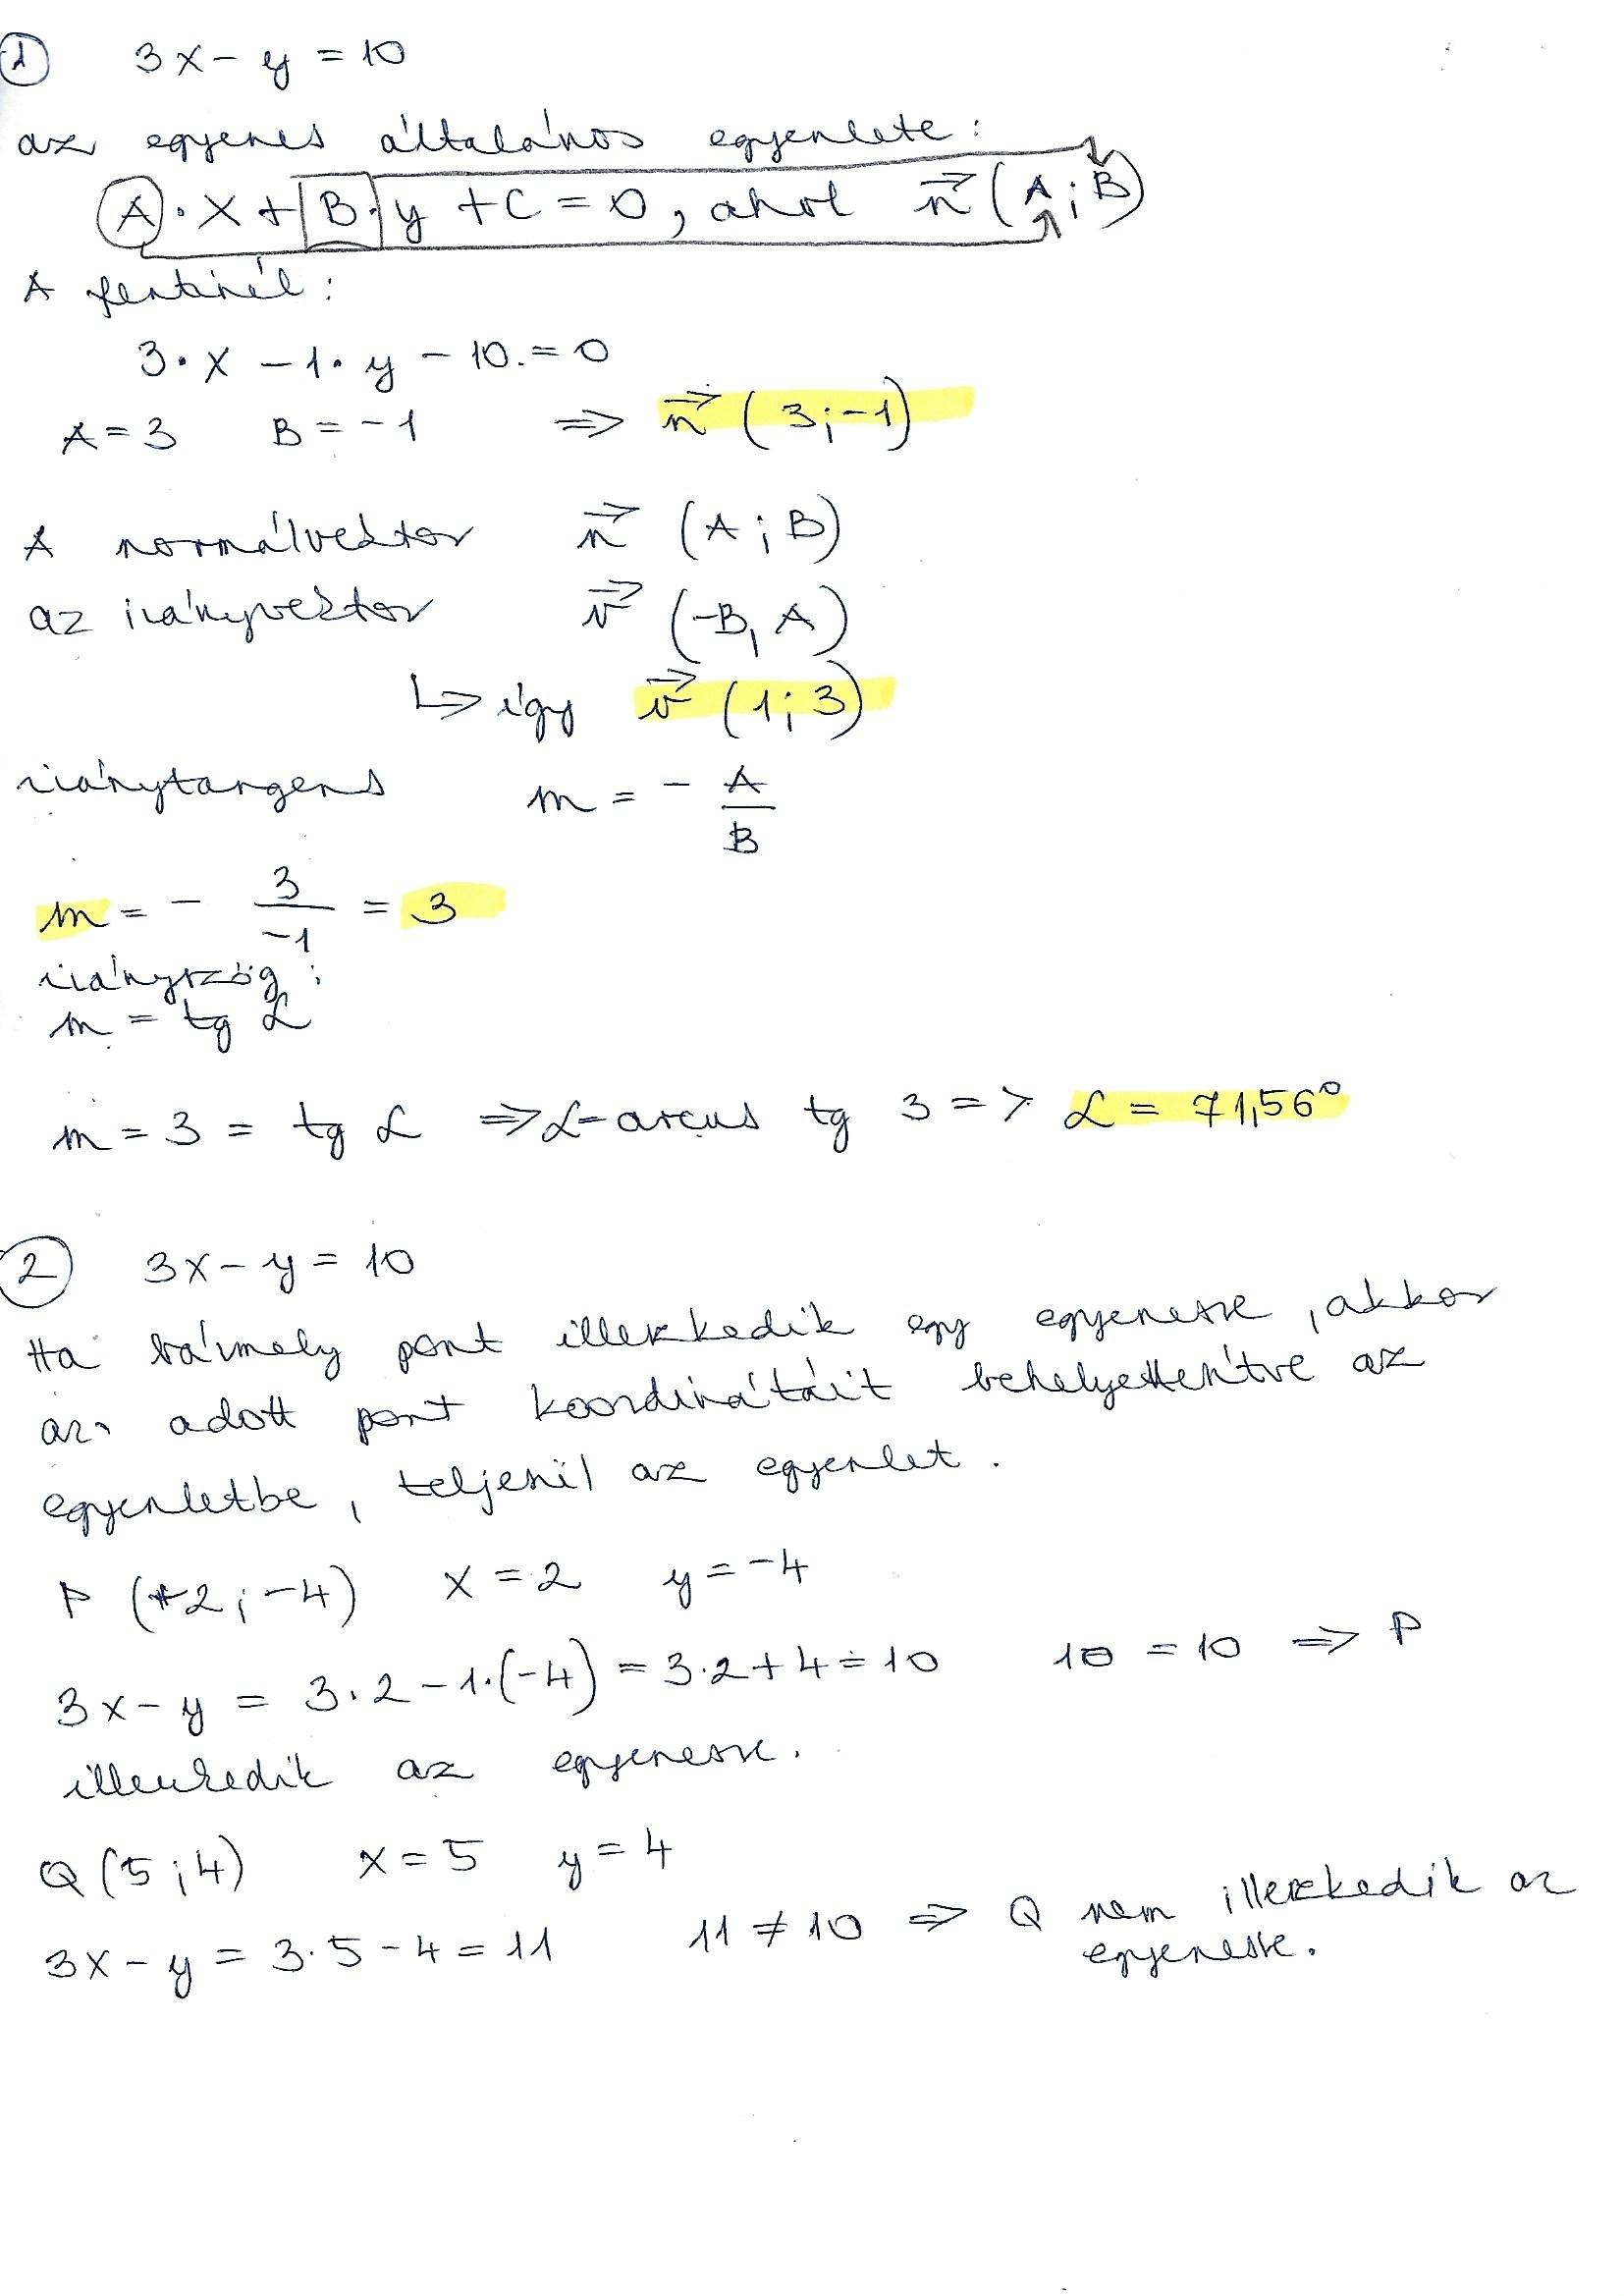 1 3x - y = 10
az egyenes általános egyenlete:
A · x + B · y + C = 0, ahol n⃗ (A; B)
A fentinél:
3 · x - 1 · y - 10 = 0
A = 3 B = -1 ⇒ n⃗ (3; -1)
A normálvektor n⃗ (A; B)
az irányvektor v⃗ (-B, A)
↳ így v⃗ (1; 3)
iránytangens m = - A/B
m = - 3/-1 = 3
irányszög:
m = tg α
m = 3 = tg α ⇒ α = arcus tg 3 => α = 71,56°
2 3x - y = 10
Ha bármely pont illeszkedik egy egyenesre, akkor
az adott pont koordinátáit behelyettesítve az
egyenletbe, teljesül az egyenlet.
P (+2; -4) x = 2 y = -4
3x - y = 3 · 2 - 1 · (-4) = 3 · 2 + 4 = 10 10 = 10 ⇒ P
illeszkedik az egyenesre.
Q (5; 4) x = 5 y = 4
3x - y = 3 · 5 - 4 = 11 11 ≠ 10 ⇒ Q nem illeszkedik az
egyenesre.